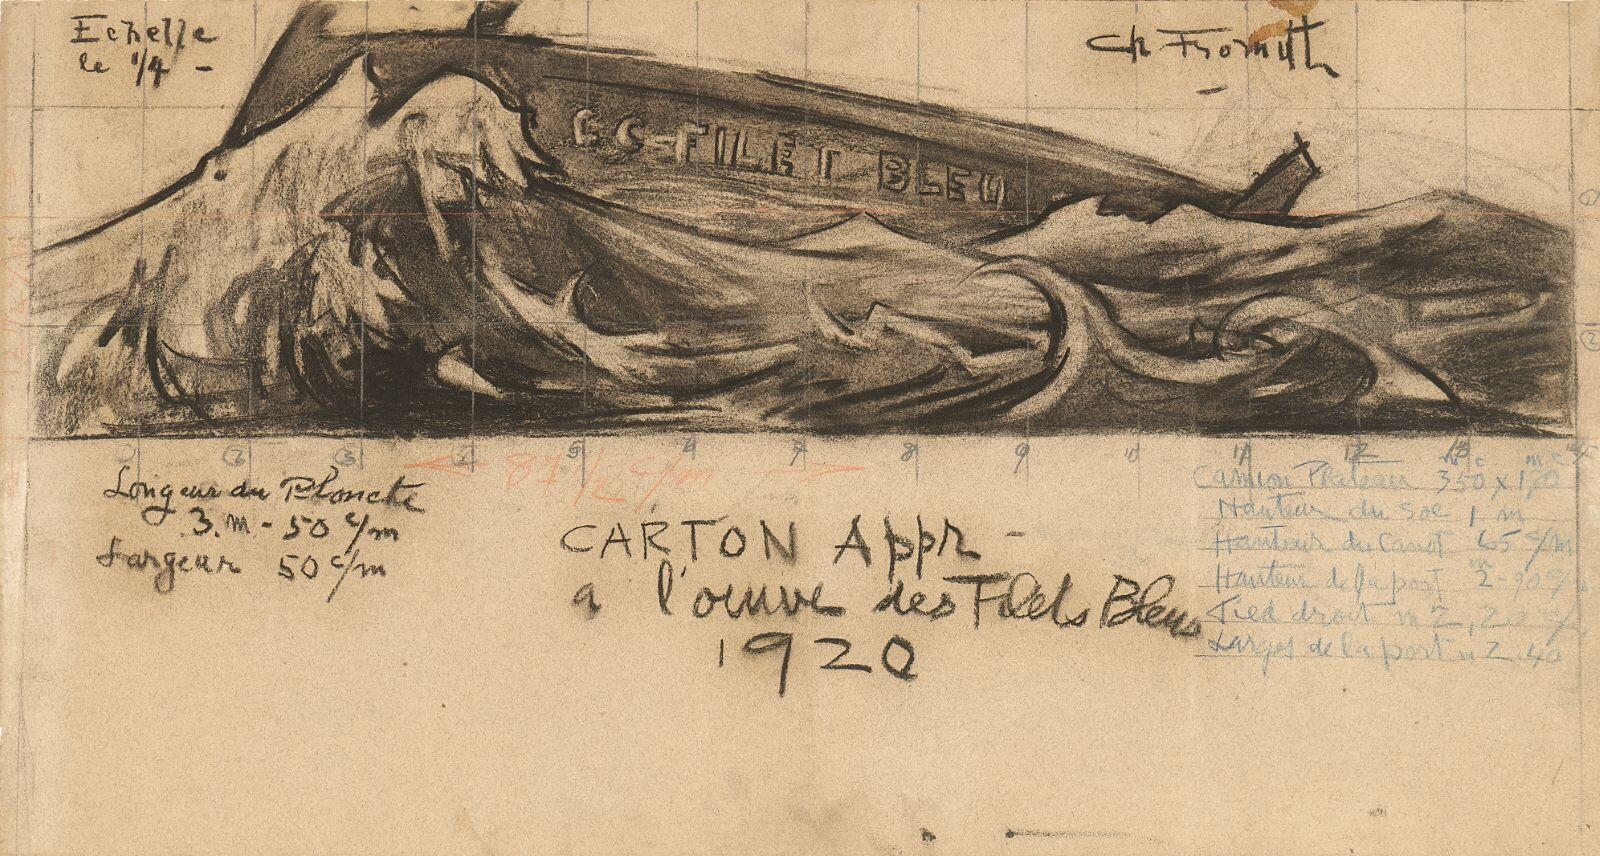 Echelle
le 1/4 -
Ch Fromuth
GC-FILET BLEU
1 2 3 4 5 6 7 8 9 10 11 12 13 14
1
2
87 1/2 c/m
Longeur du Planche
3. m - 50 c/m
Largeur 50 c/m
CARTON Appr -
a l'œuvre des Filets Bleus
1920
Camion Plateau 350 x 170
Hauteur du Sol 1 m
Hauteur du Canot 65 c/m
Hauteur de la port m 2-90 c/m
Pied droit m 2,20 c/m
Larges de la port m 2.40